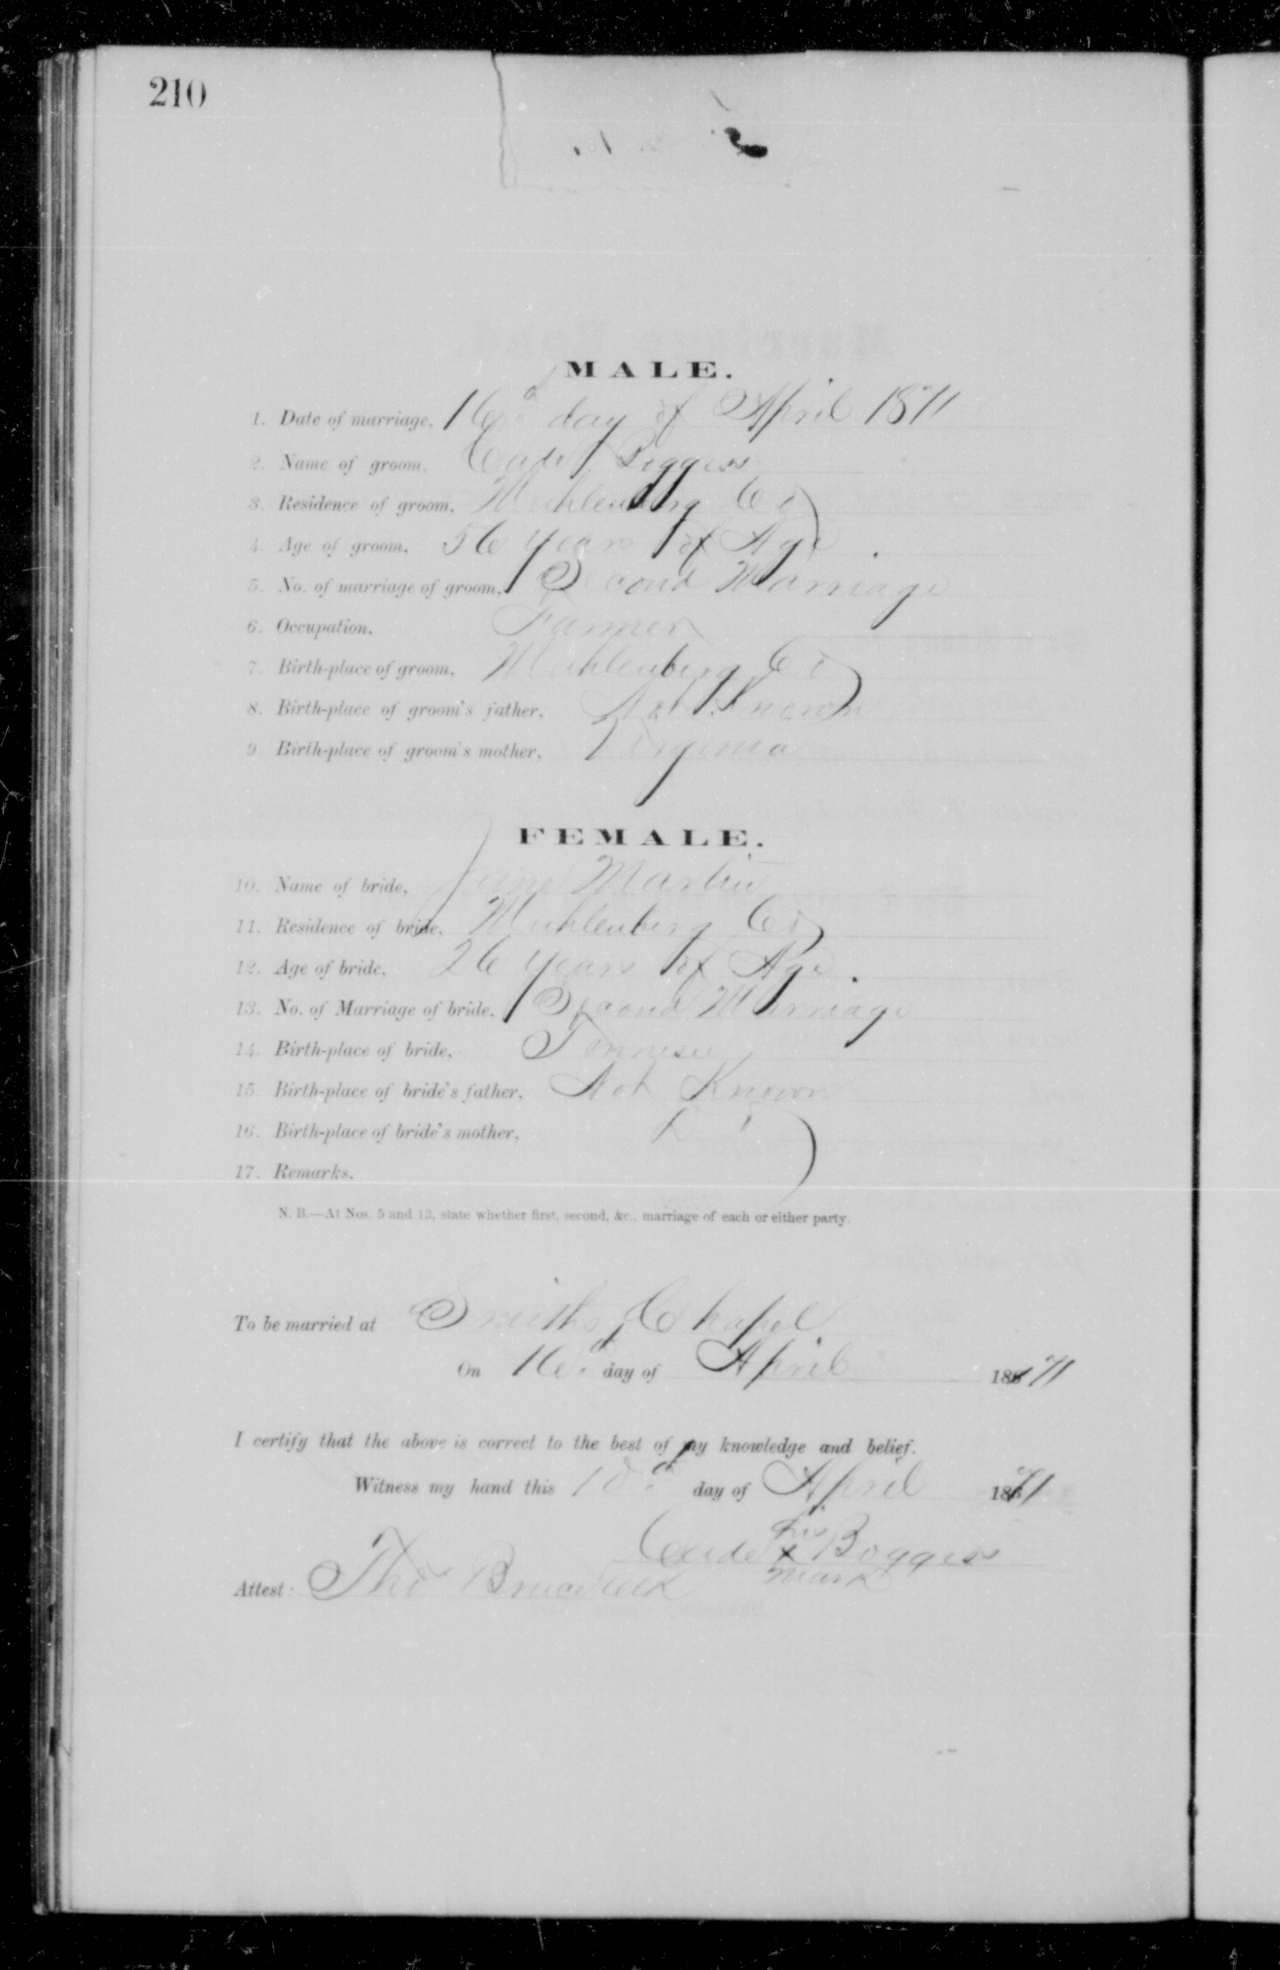 210
MALE.
1. Date of marriage, 16th day of April 1871
2. Name of groom, Cade Boggess
3. Residence of groom, Muhlenberg Co
4. Age of groom, 56 years of Age.
5. No. of marriage of groom, Second Marriage
6. Occupation, Farmer
7. Birth-place of groom, Muhlenberg Co
8. Birth-place of groom's father, Not Known
9. Birth-place of groom's mother, Virginia
FEMALE.
10. Name of bride, Jane Martin
11. Residence of bride, Muhlenberg Co
12. Age of bride, 26 years of Age.
13. No. of Marriage of bride, Second Marriage
14. Birth-place of bride, Tennessee
15. Birth-place of bride's father, Not Known
16. Birth-place of bride's mother,
17. Remarks.
N. B.—At Nos. 5 and 13, state whether first, second, &c., marriage of each or either party.
To be married at Smiths Chapel
On 16th day of April 1871
I certify that the above is correct to the best of my knowledge and belief.
Witness my hand this 10th day of April 1871
Cade his x mark Boggess
Attest: Tho Bruce